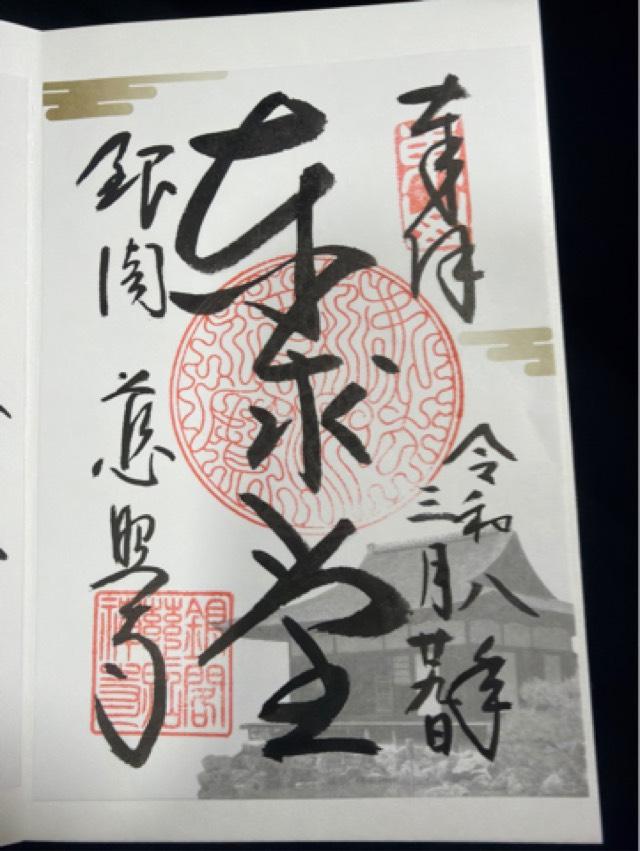 奉拝
令和八年
三月廿九日
東求堂
銀閣 慈照寺
銀閣
慈照
禅寺